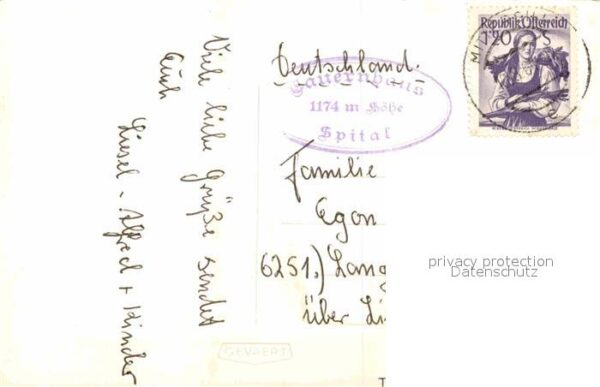 Viele liebe Grüße sendet
Euch
Liesel - Alfred + Kinder
Deutschland.
Tauernhaus
1174 m Höhe
Spital
Republik Österreich
1'20 S
Familie
Egon
6251.) Lang
über Li
privacy protection
Datenschutz
GEVAERT
T